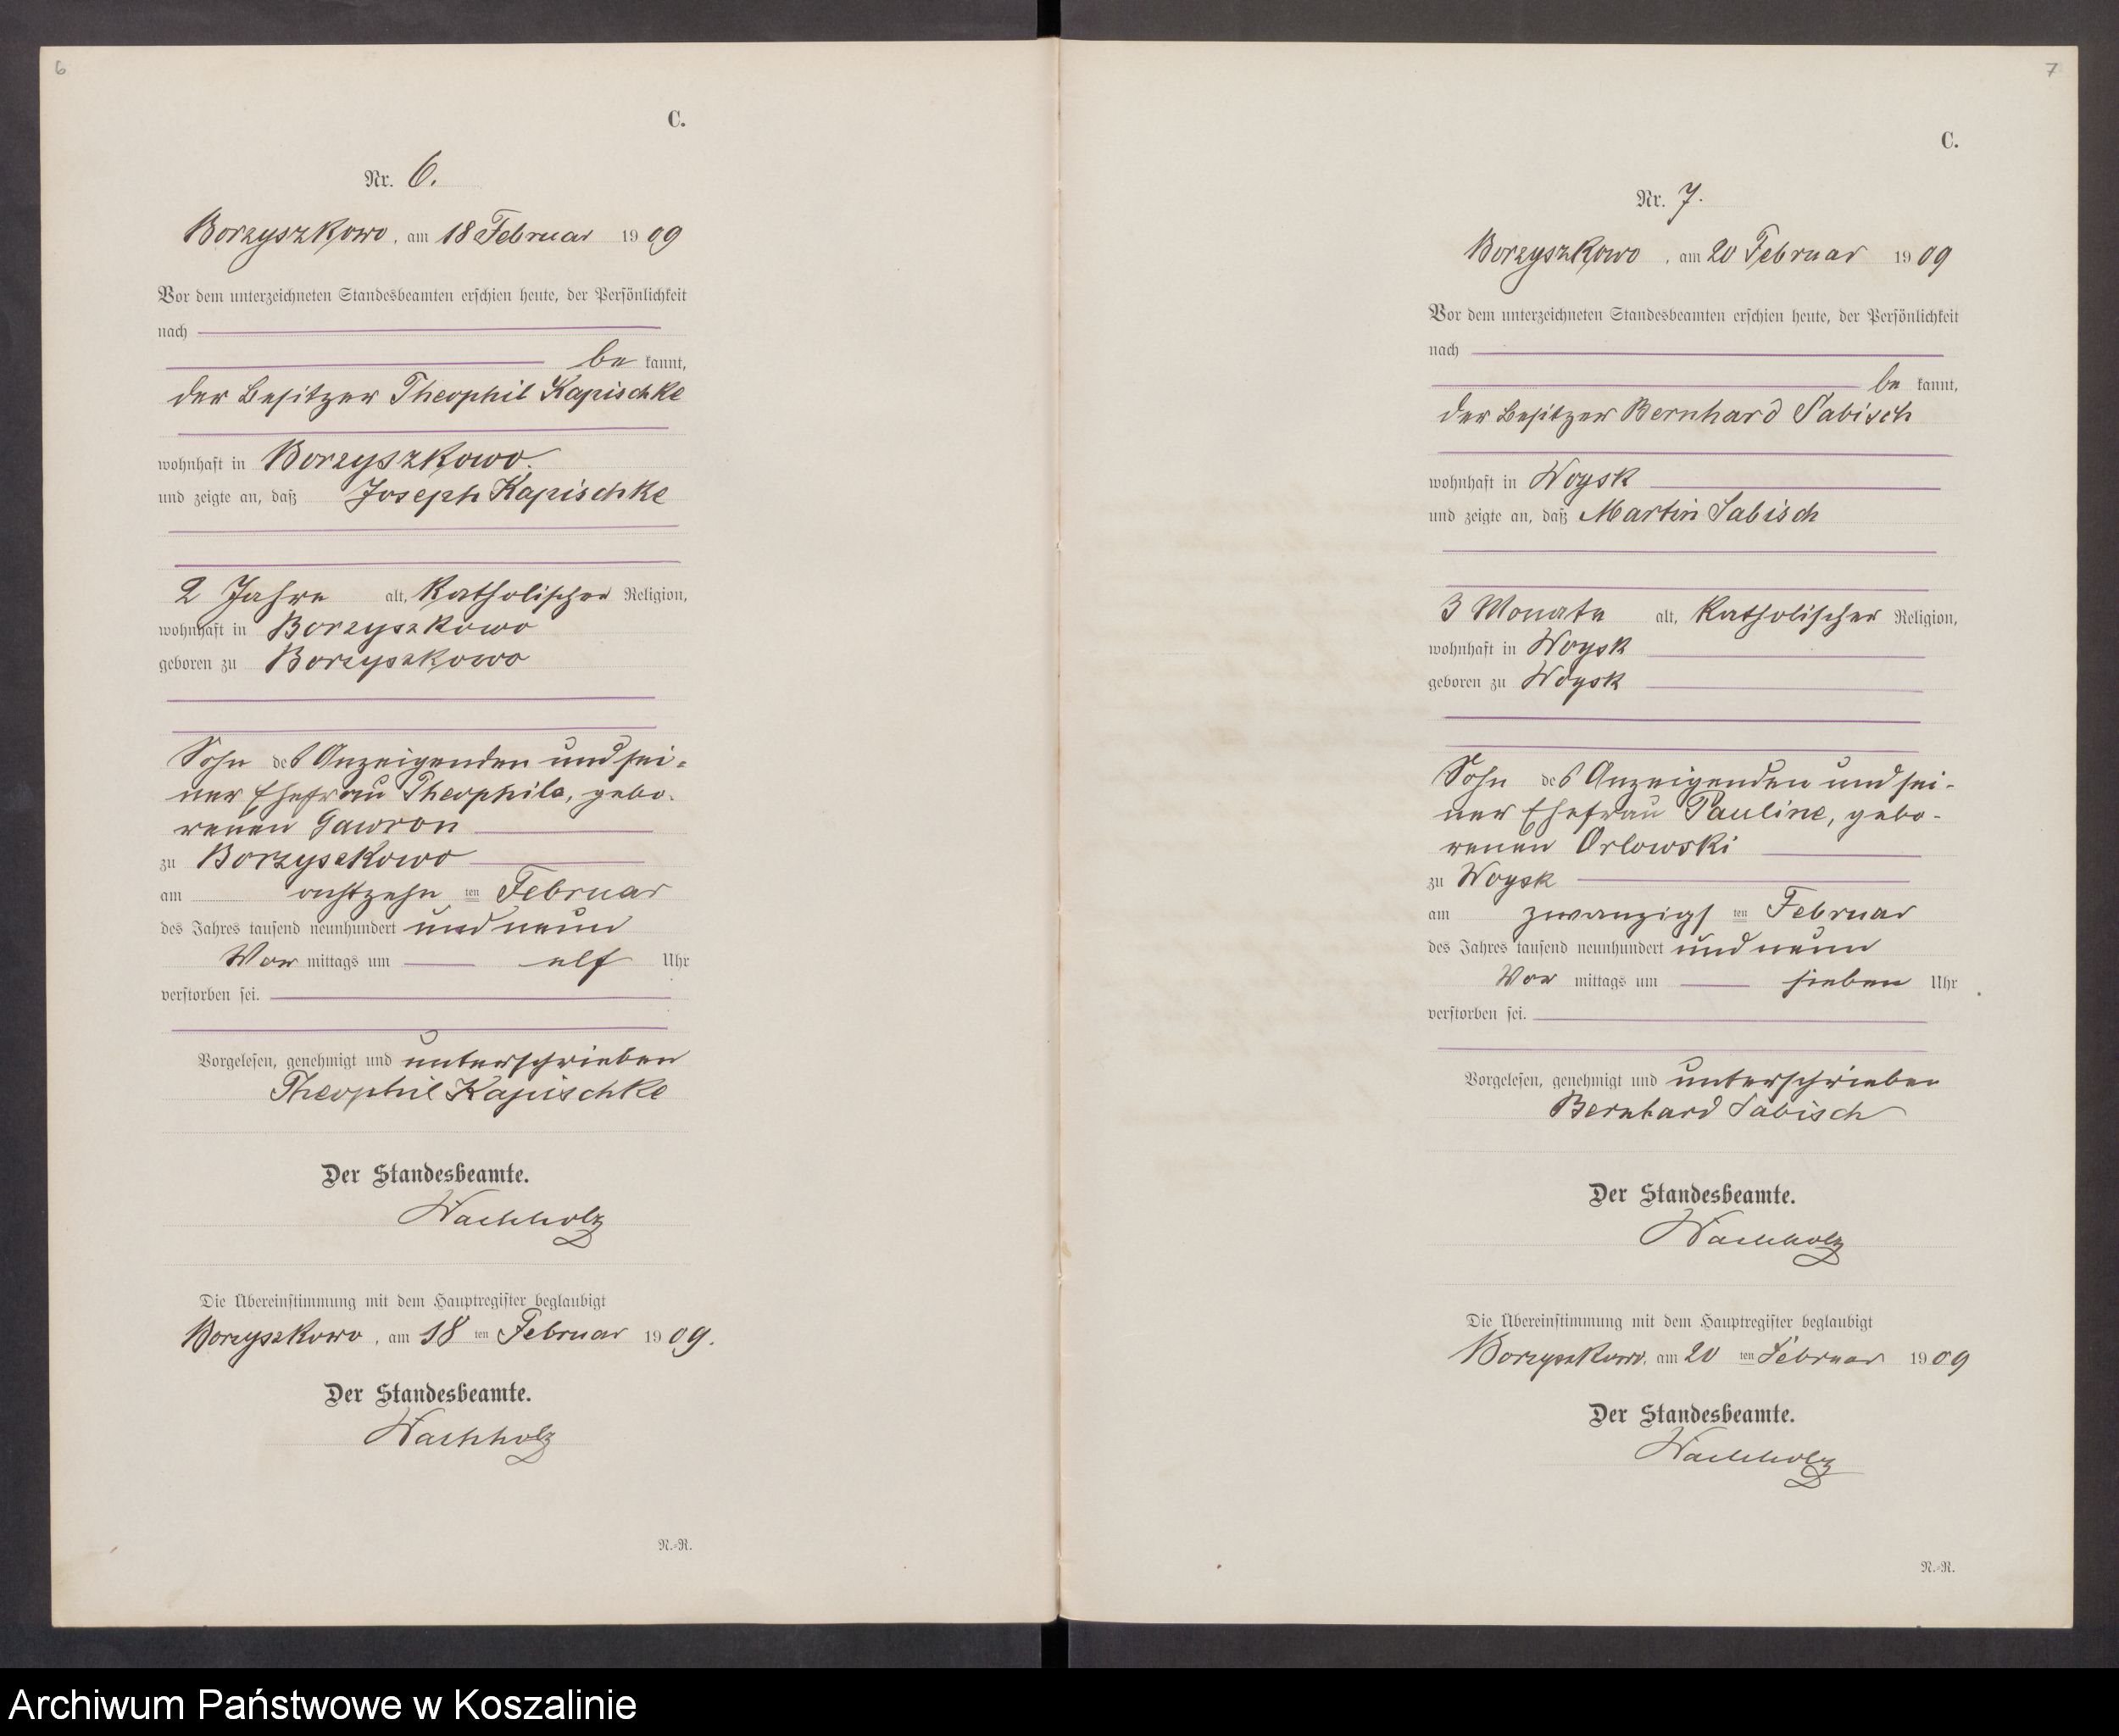 6
C.
Nr. 6.
Borzyszkowo, am 18 Februar 1909
Vor dem unterzeichneten Standesbeamten erschien heute, der Persönlichkeit
nach
be kannt,
der Besitzer Theophil Kapischke
wohnhaft in Borzyszkowo.
und zeigte an, daß Joseph Kapischke
2 Jahre alt, katholischer Religion,
wohnhaft in Borzyszkowo
geboren zu Borzyszkowo
Sohn des Anzeigenden und sei-
ner Ehefrau Theophila, gebo-
renen Gawron
zu Borzyszkowo
am achtzehn ten Februar
des Jahres tausend neunhundert und neun
Vor mittags um elf Uhr
verstorben sei.
Vorgelesen, genehmigt und unterschrieben
Theophil Kapischke
Der Standesbeamte.
Wachholz
Die Übereinstimmung mit dem Hauptregister beglaubigt
Borzyszkowo, am 18 ten Februar 1909.
Der Standesbeamte.
Wachholz
N.-R.
7
C.
Nr. 7.
Borzyszkowo, am 20 Februar 1909
Vor dem unterzeichneten Standesbeamten erschien heute, der Persönlichkeit
nach
be kannt,
der Besitzer Bernhard Sabisch
wohnhaft in Woysk
und zeigte an, daß Martin Sabisch
3 Monate alt, katholischer Religion,
wohnhaft in Woysk
geboren zu Woysk
Sohn des Anzeigenden und sei-
ner Ehefrau Pauline, gebo-
renen Orlowski
zu Woysk
am zwanzigs ten Februar
des Jahres tausend neunhundert und neun
Vor mittags um sieben Uhr
verstorben sei.
Vorgelesen, genehmigt und unterschrieben
Bernhard Sabisch
Der Standesbeamte.
Wachholz
Die Übereinstimmung mit dem Hauptregister beglaubigt
Borzyszkowo, am 20 ten Februar 1909
Der Standesbeamte.
Wachholz
N.-R.
Archiwum Państwowe w Koszalinie